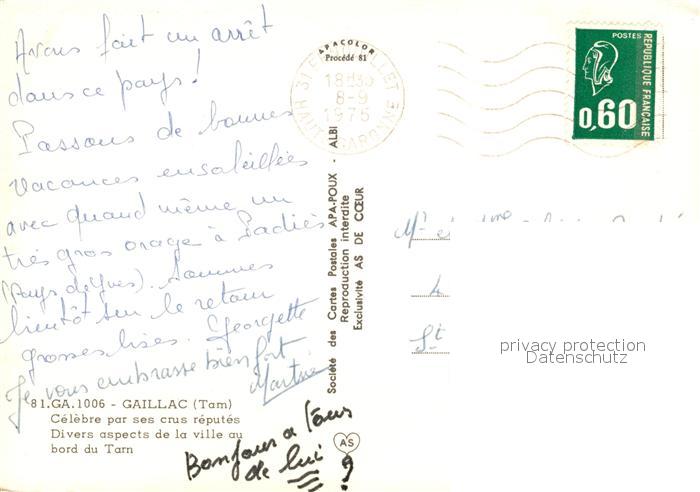 Avons fait un arrêt
dans ce pays !
Passons de bonnes
vacances ensoleillées
avec quand même un
très gros orage à Padiès
(Pays de Yves). Sommes
bientôt sur le retour
grosses bises. Georgette
Je vous embrasse bien fort
Martine
81.GA.1006 - GAILLAC (Tam)
Célèbre par ses crus réputés
Divers aspects de la ville au
bord du Tarn
Bonjour a Tous
de lui ?
AS
APACOLOR
Procédé 81
18H
8-9
1975
HAUTE GARONNE
Société des Cartes Postales APA-POUX - ALBI
Reproduction interdite
Exclusivité AS DE CŒUR
POSTES
REPUBLIQUE FRANÇAISE
0,60
Mr et Mme
St
privacy protection
Datenschutz